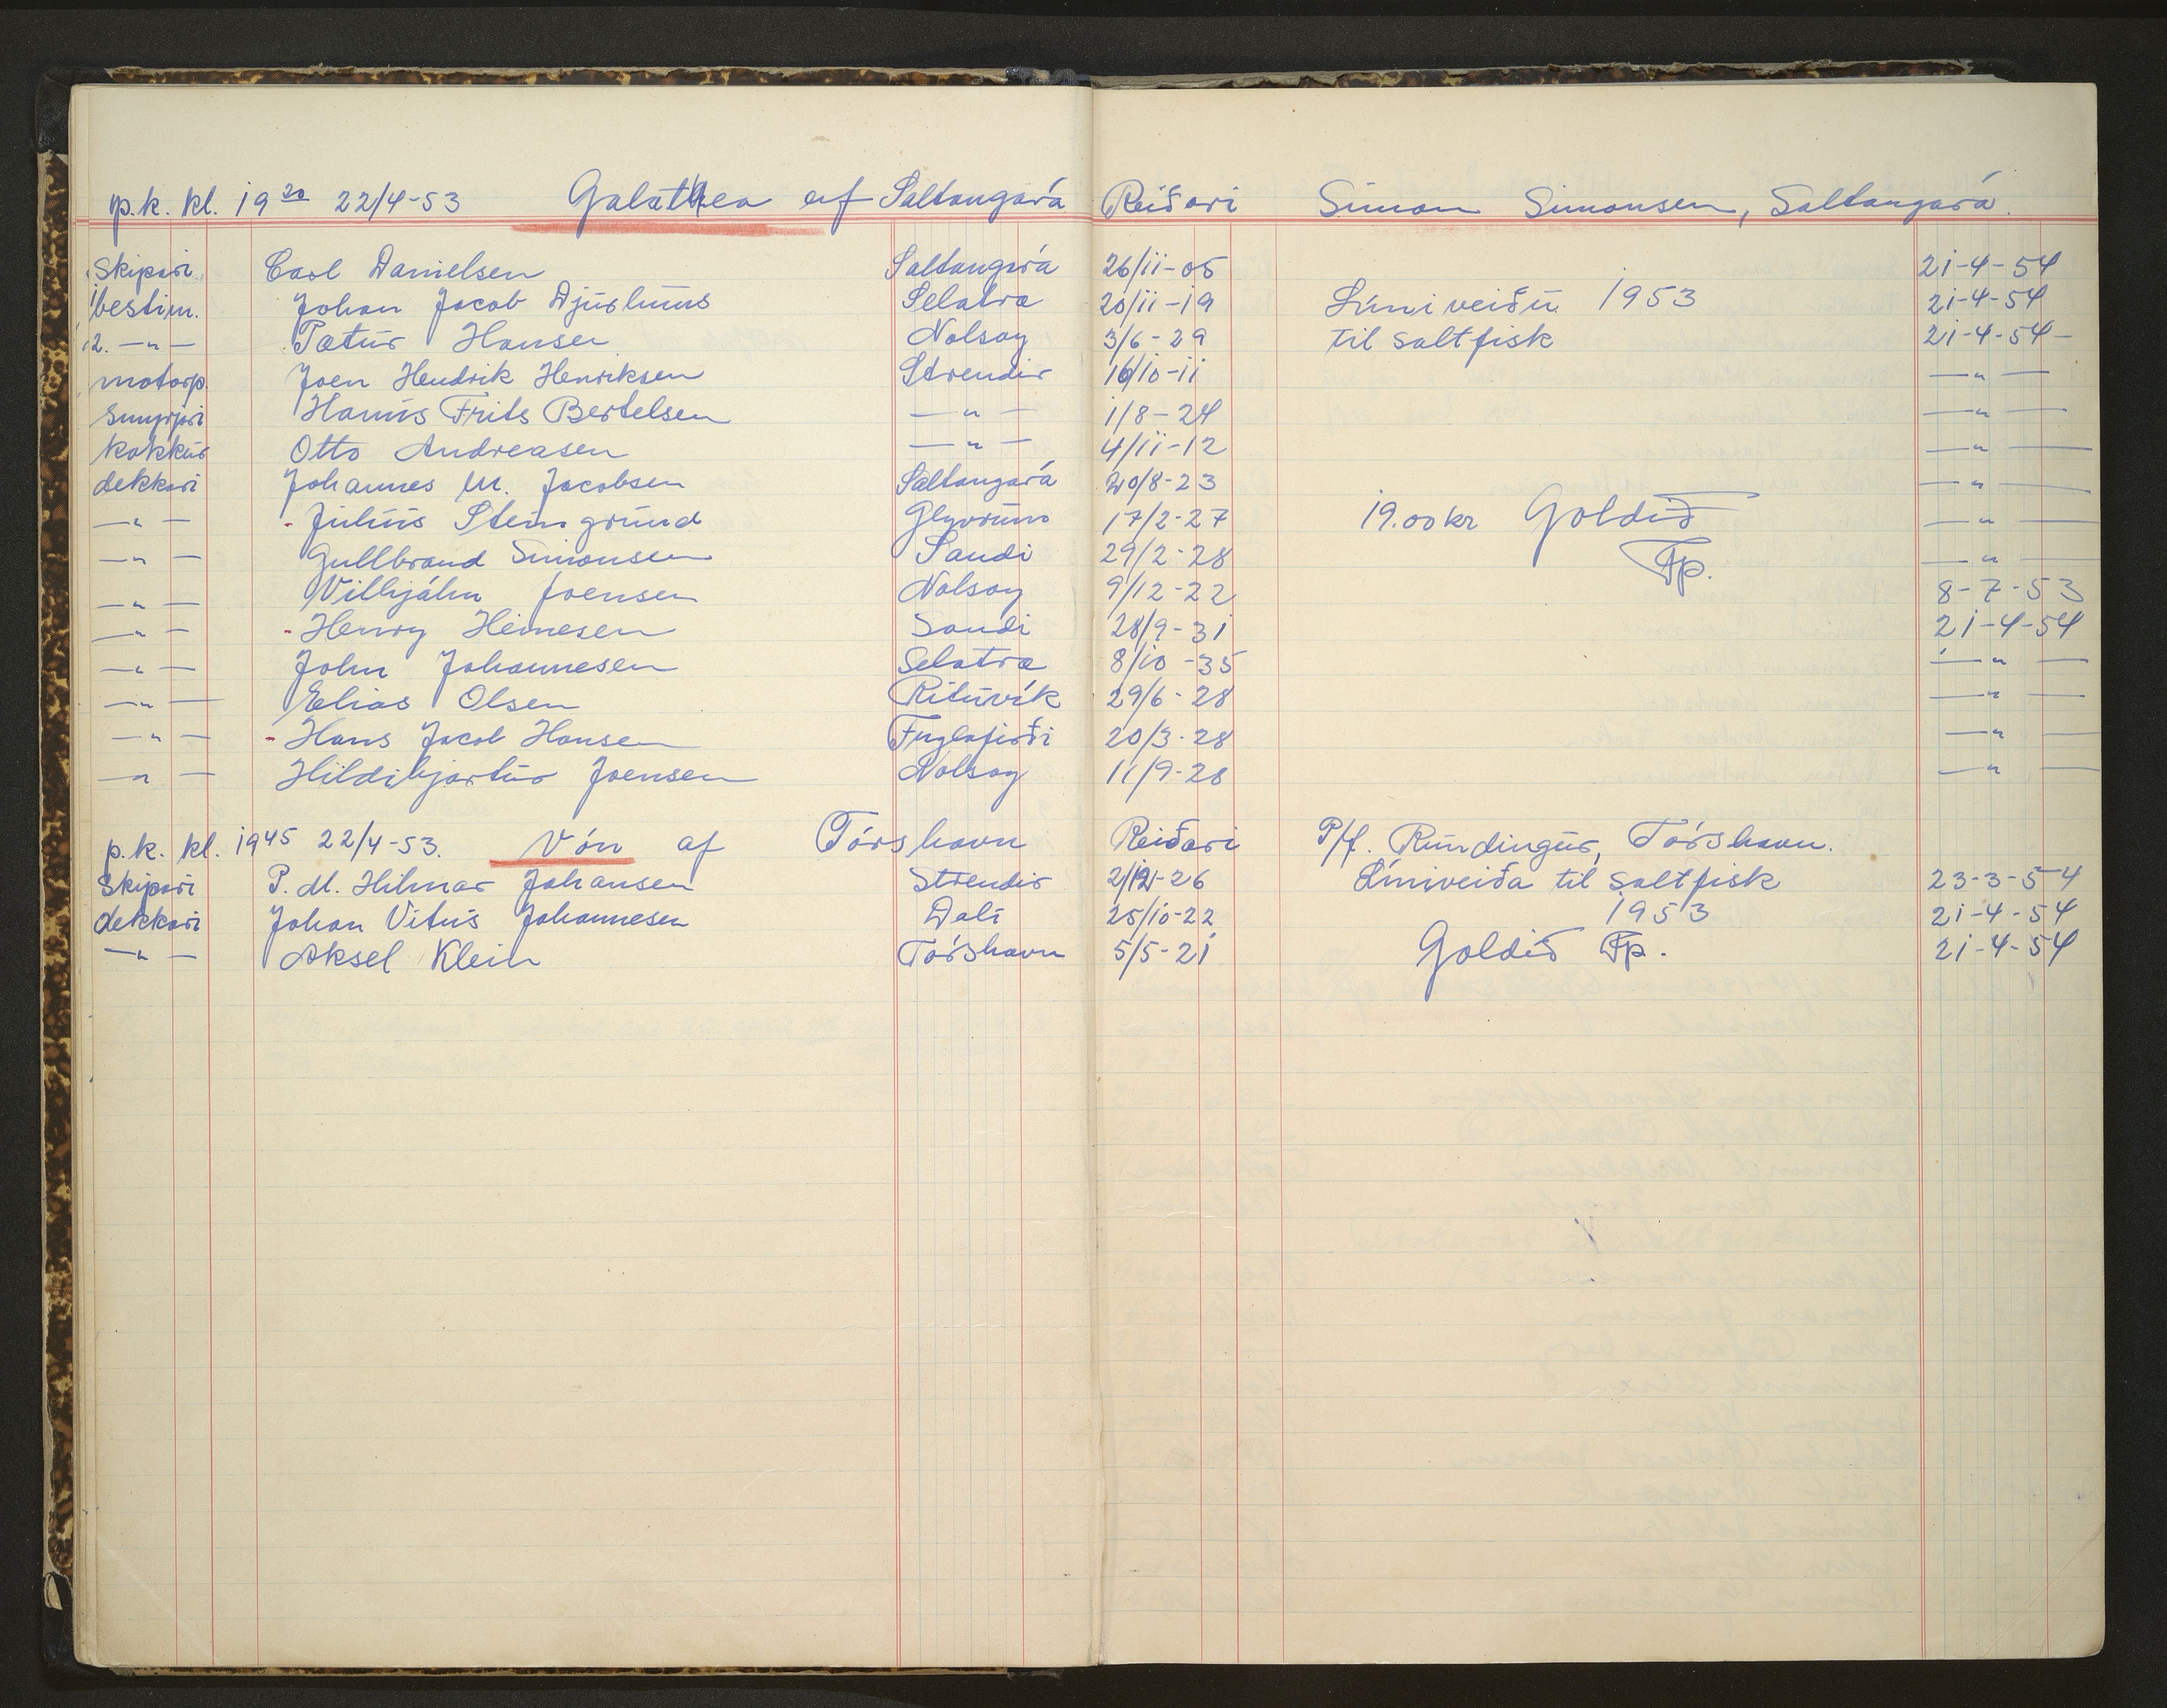 p.k. kl. 19 20 22/4-53 Galathea af Saltangará Reiðari Simon Simonsen, Saltangará.
Skipari Carl Danielsen Saltangará 26/11-05 21-4-54
1 bestim. Johan Jacob Djurhuus Selatra 20/11-19 Línuveiðu 1953 21-4-54
2. -"- Patur Hansen Nolsoy 3/6-29 til saltfisk 21-4-54-
motorp. Joen Hendrik Henriksen Strendir 16/10-11 -"-
Hanus Frits Bertelsen -"- 1/8-24 -"-
kokkur Otto Andreasen -"- 4/11-12 -"-
dekkari Johannes M. Jacobsen Saltangará 20/8-23 -"-
-"- - Julius Steingrund Glyvrum 17/2-27 19.00 kr Goldið -"-
-"- Gullbrand Simonsen Sandi 29/2-28 Fp. -"-
-"- Vilhjálm Joensen Nolsoy 9/12-22 8-7-53
-"- - Henry Heinesen Sandi 28/9-31 21-4-54
-"- John Johannesen Selatra 8/10-35 -"-
-"- Elias Olsen Rituvík 29/6-28 -"-
-"- - Hans Jacob Hansen Fuglafirði 20/3-28 -"-
-"- Hildibjartur Joensen Nolsoy 11/9-28 -"-
p.k. kl. 19 45 22/4-53. Vón af Tórshavn Reiðari P/f. Rundingur, Tórshavn.
Skipari P. M. Hilmar Johansen Strendir 2/12-26 Línuveiða til saltfisk 23-3-54
dekkari Johan Vitus Johannesen Dali 25/10-22 1953 21-4-54
-"- Aksel Klein Tórshavn 5/5-21 Goldið Fp. 21-4-54